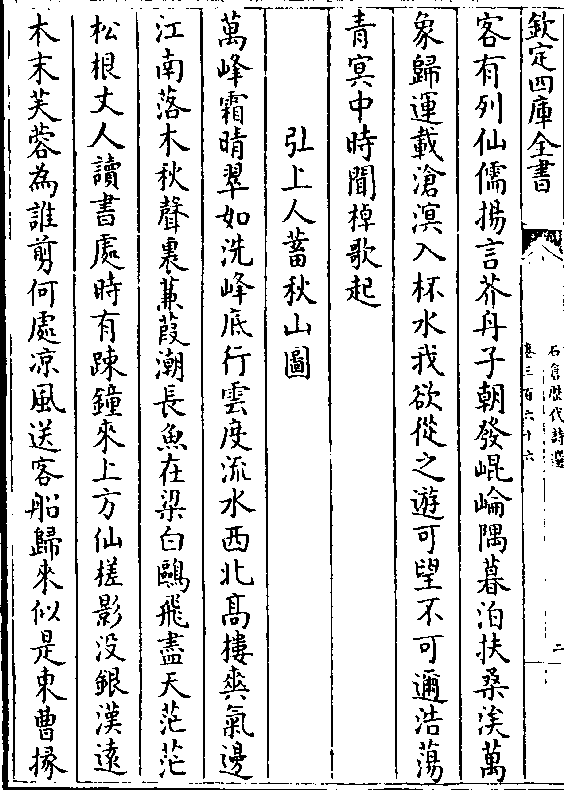 欽定四庫全書
石倉歷代詩選
卷三百六十六
二
客有列仙儒揚言芥舟子朝發崐崘隅暮泊扶桑涘萬
象歸運載滄溟入杯水我欲從之遊可望不可邇浩蕩
青冥中時聞棹歌起
弘上人蓄秋山圖
萬峰霜晴翠如洗峰底行雲度流水西北髙樓爽氣邊
江南落木秋聲裏蒹葭潮長魚在梁白鷗飛盡天茫茫
松根丈人讀書處時有踈鐘來上方仙槎影没銀漢逺
木末芙蓉為誰剪何處凉風送客船歸來似是東曹掾